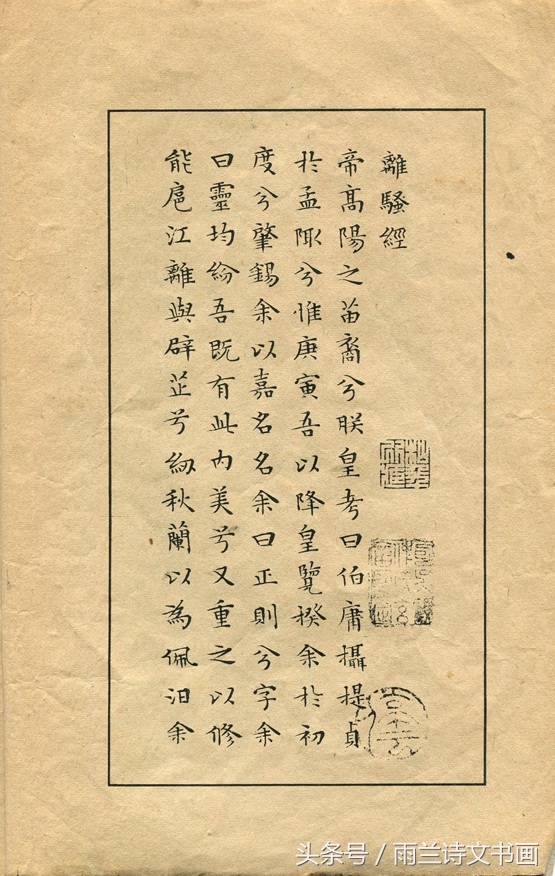 離騷經
帝髙陽之苗裔兮朕皇考曰伯庸攝提貞
於孟陬兮惟庚寅吾以降皇覽揆余於初
度兮肇錫余以嘉名名余曰正則兮字余
曰靈均紛吾既有此内美兮又重之以修
能扈江離與辟芷兮紉秋蘭以為佩汩余
头条号 / 雨兰诗文书画